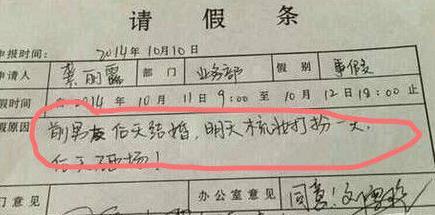 请假条
申报时间: 2014年10月10日
申请人 龚丽露 部门 业务部 假别 事假
假时间 2014年10月11日9:00至10月12日18:00止
假原因 前男友后天结婚,明天梳妆打扮一天,
后天砸场!
门意见 办公室意见 同意!